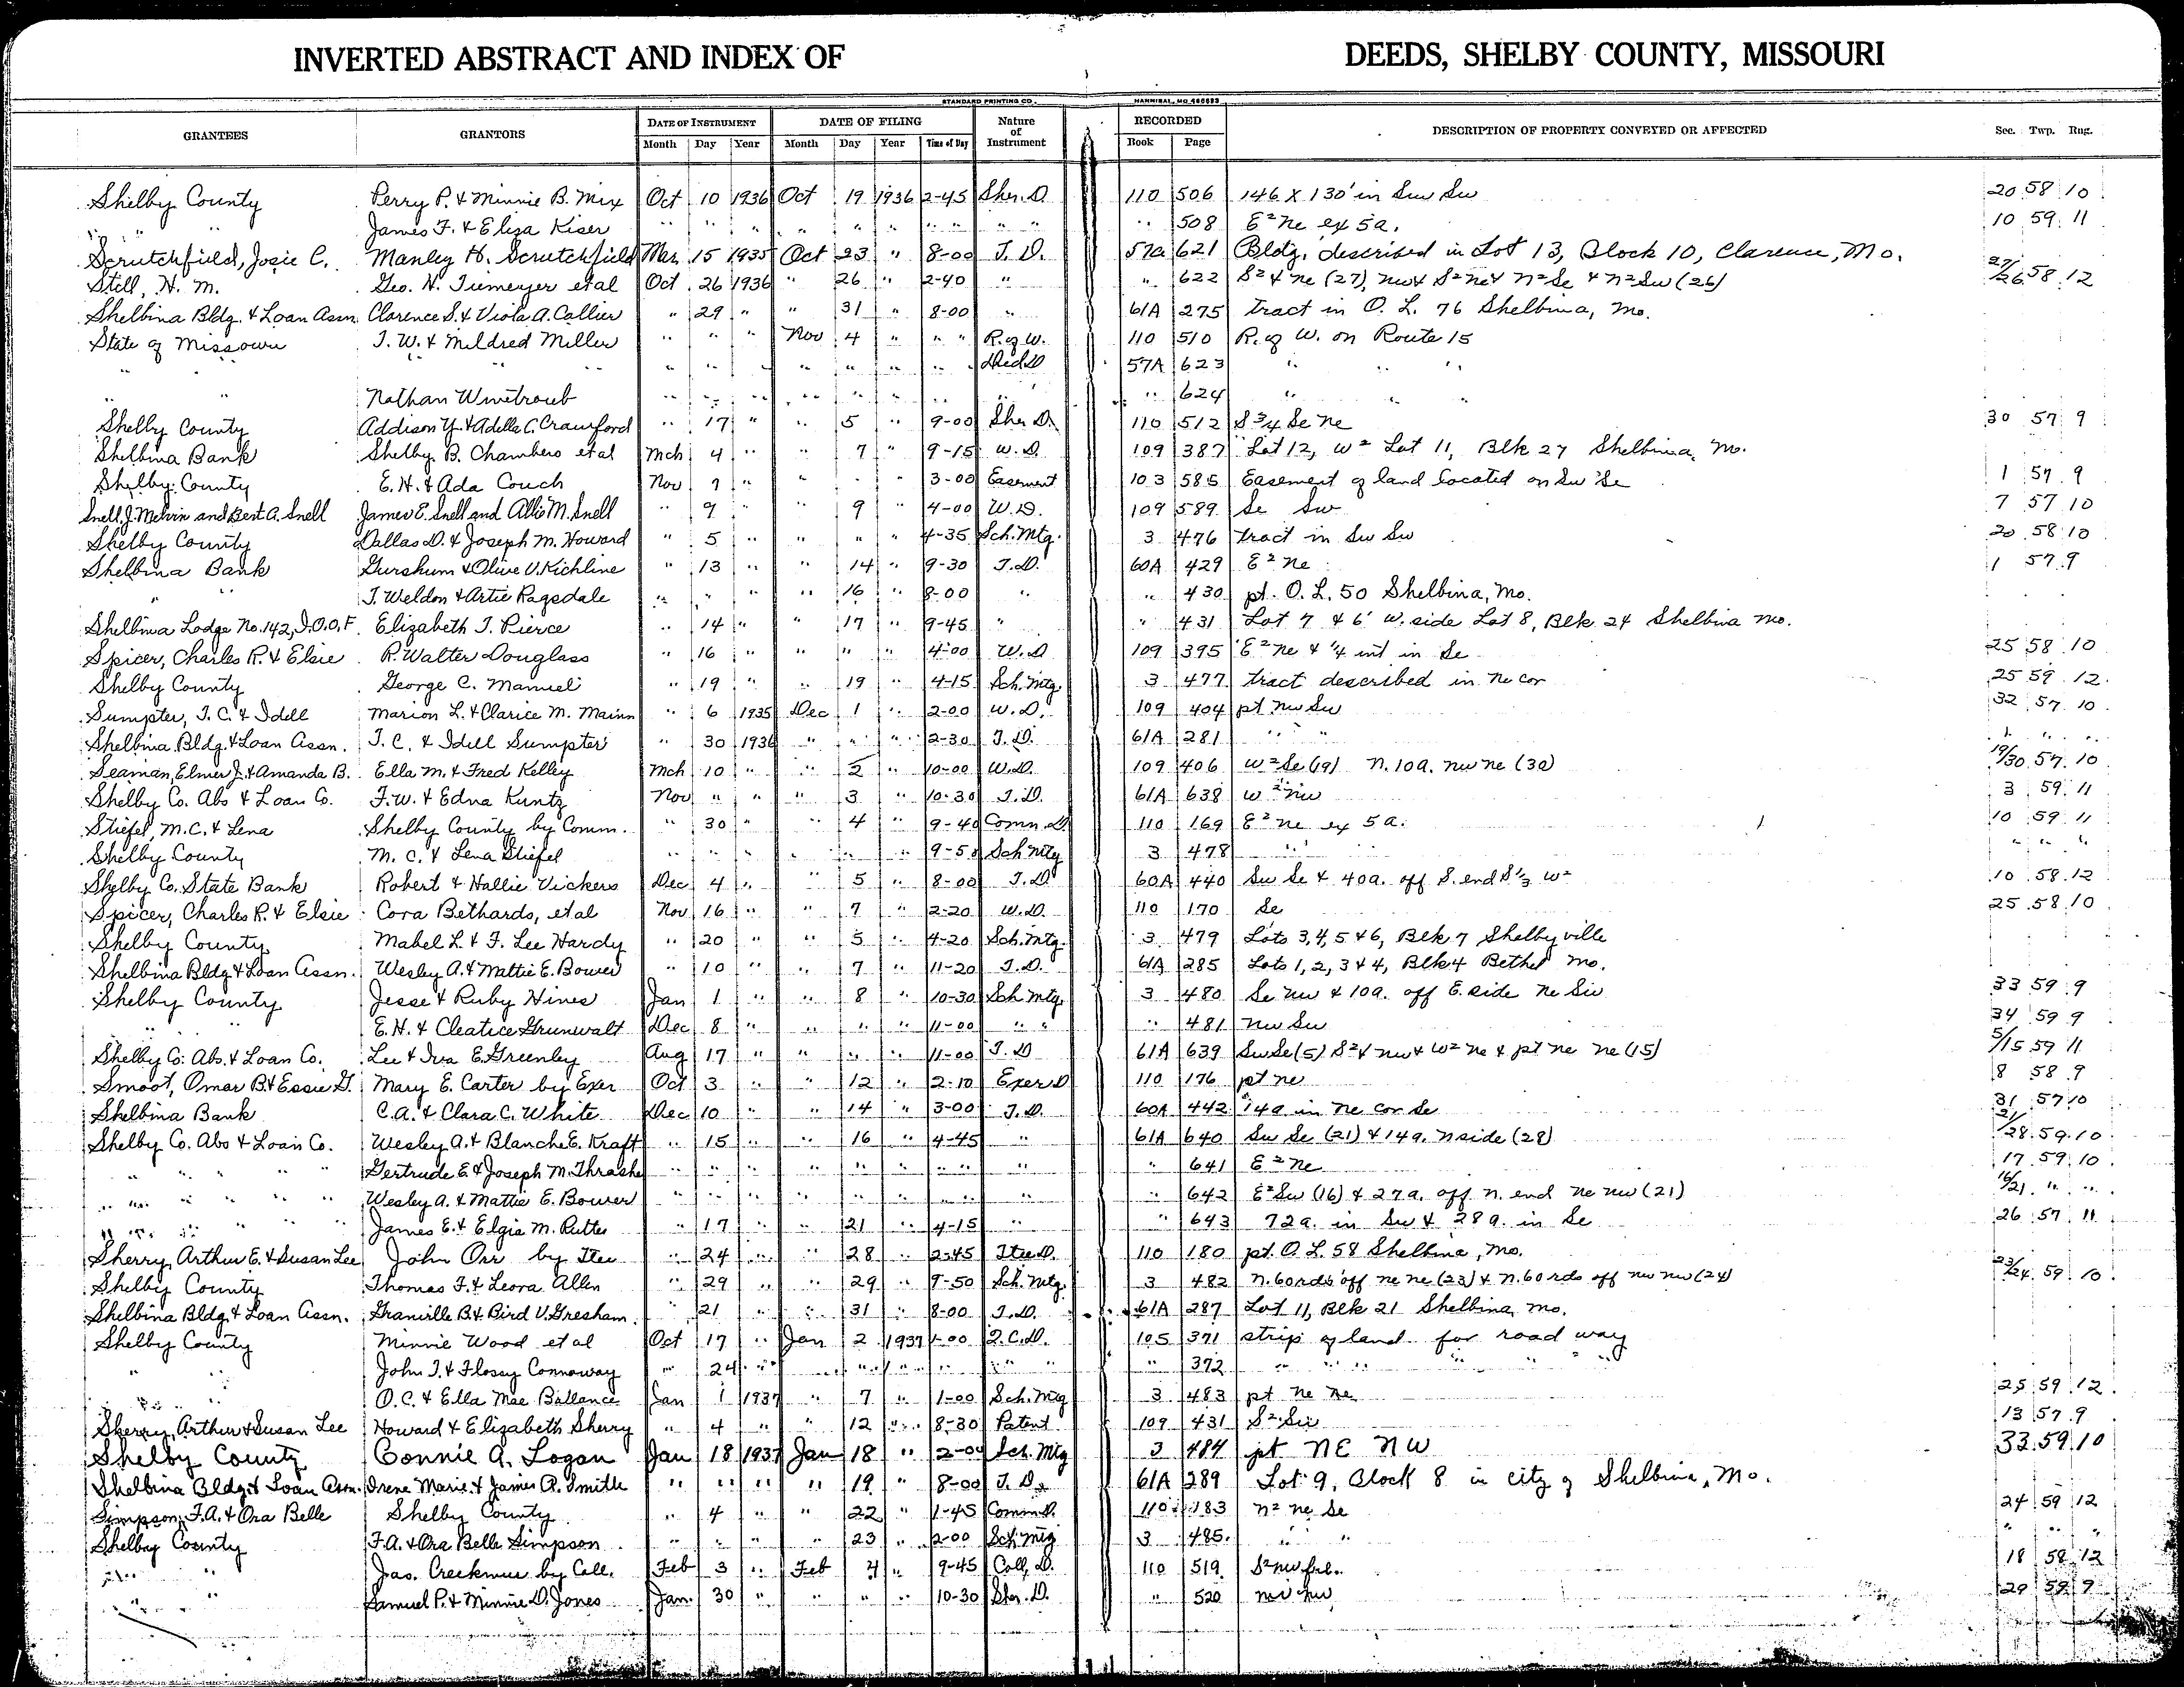 INVERTED ABSTRACT AND INDEX OF DEEDS, SHELBY COUNTY, MISSOURI
STANDARD PRINTING CO. HANNIBAL, MO
GRANTEES GRANTORS DATE OF INSTRUMENT DATE OF FILING Nature of Instrument RECORDED DESCRIPTION OF PROPERTY CONVEYED OR AFFECTED Sec. Twp. Rng.
Month Day Year Month Day Year Time of Day Book Page
Shelby County Perry P. & Minnie B. Mix Oct 10 1936 Oct 19 1936 2-45 Sher. D. 110 506 146 X 130' in Sw Sw 20 58 10
" " James F. & Eliza Kiser " " " " " " " " " 508 E² Ne ex 5a. 10 59 11
Scrutchfield, Josie C. Manley H. Scrutchfield Mar 15 1935 Oct 23 " 8-00 T. D. 57a 621 Bldg. described in Lot 13, Block 10, Clarence, Mo.
Still, H. M. Geo. H. Tiemeyer etal Oct 26 1936 " 26 " 2-40 " " 622 S² & Ne (27), nw & S² ne & N² Se & N² Sw (26) 27/26 58 12
Shelbina Bldg. & Loan Assn. Clarence S. & Viola A. Collier " 29 " " 31 " 8-00 " 61A 275 tract in O. L. 76 Shelbina, Mo.
State of Missouri T. W. & Mildred Miller " " " Nov 4 " " " R. of W. 110 510 R. of W. on Route 15
" " " " " " " " " " Ded D 57A 623 " " "
" " Nathan Winetroub " " " " " " " " " 624 " "
Shelby County Addison Y. & Adella C. Crawford " 17 " " 5 " 9-00 Sher D. 110 512 S 3/4 Se Ne 30 57 9
Shelbina Bank Shelby B. Chambers et al Mch 4 " " 7 " 9-15 W. D. 109 387 Lot 12, W² Lot 11, Blk 27 Shelbina, Mo.
Shelby County E. H. & Ada Couch Nov 7 " " " " 3-00 Easement 103 585 Easement of land located on Sw Se 1 57 9
Snell, J. Melvin and Bert A. Snell James E. Snell and Allie M. Snell " 9 " " 9 " 4-00 W. D. 109 589 Se Sw 7 57 10
Shelby County Dallas D. & Joseph M. Howard " 5 " " " " 4-35 Sch. Mtg. 3 476 tract in Sw Sw 20 58 10
Shelbina Bank Gurshum & Olive V. Kichline " 13 " " 14 " 9-30 T. D. 60A 429 E² Ne 1 57 9
" T. Weldon & Artie Ragsdale " " " " 16 " 8-00 " " 430 pt. O. L. 50 Shelbina, Mo.
Shelbina Lodge No. 142, I.O.O.F. Elizabeth T. Pierce " 14 " " 17 " 9-45 " " 431 Lot 7 & 6' W. side Lot 8, Blk 24 Shelbina Mo.
Spicer, Charles R. & Elsie R. Walter Douglass " 16 " " " " 4-00 W. D 109 395 E² Ne & 1/4 int in Se 25 58 10
Shelby County George C. Manuel " 19 " " 19 " 4-15 Sch. Mtg. 3 477 tract described in Ne cor 25 59 12
Sumpter, T. C. & Idell Marion L. & Clarice M. Mainn " 6 1935 Dec 1 " 2-00 W. D. 109 404 pt nw Sw 32 57 10
Shelbina Bldg. & Loan Assn. T. C. & Idell Sumpter " 30 1936 " " " 2-30 T. D. 61A 281 " " " " "
Seaman, Elmer J. & Amanda B. Ella M. & Fred Kelley Mch 10 " " 2 " 10-00 W.D. 109 406 W² Se (19) N. 10a. nw ne (30) 19/30 57 10
Shelby Co. Abs & Loan Co. F. W. & Edna Kuntz Nov " " " 3 " 10-30 T. D. 61A 638 W² nw 3 59 11
Stiefel, M. C. & Lena Shelby County by Comm. " 30 " " 4 " 9-40 Comn. D. 110 169 E² ne ex 5a. 10 59 11
Shelby County M. C. & Lena Stiefel " " " " " " 9-50 Sch Mtg 3 478 " " " " "
Shelby Co. State Bank Robert & Hallie Vickers Dec 4 " " 5 " 8-00 T. D 60A 440 Sw Se & 40a. off S. end S 1/3 W² 10 58 12
Spicer, Charles R. & Elsie Cora Bethards, et al Nov 16 " " 7 " 2-20 W. D. 110 170 Se 25 58 10
Shelby County Mabel L. & F. Lee Hardy " 20 " " 5 " 4-20 Sch. Mtg. 3 479 Lots 3, 4, 5 & 6, Blk 7 Shelbyville
Shelbina Bldg & Loan Assn. Wesley A. & Mattie E. Bower " 10 " " 7 " 11-20 T. D. 61A 285 Lots 1, 2, 3 & 4, Blk 4 Bethel Mo.
Shelby County Jesse & Ruby Hines Jan 1 " " 8 " 10-30 Sch. Mtg. 3 480 Se nw & 10a. off E. side Ne Sw 33 59 9
" " E. H. & Cleatice Grunwalt Dec 8 " " " " 11-00 " " " 481 nw Sw 34 59 9
Shelby Co. Abs. & Loan Co. Lee & Iva E. Greenley Aug 17 " " " " 11-00 T. D 61A 639 Sw Se (5) S² & nw & W² ne & pt ne ne (15) 5/15 59 11
Smoot, Omar B. & Essie G. Mary E. Carter by Exer Oct 3 " " 12 " 2-10 Exer D 110 176 pt ne 8 58 9
Shelbina Bank C. A. & Clara C. White Dec 10 " " 14 " 3-00 T. D. 60A 442 14a in ne cor Se 31 57 10
Shelby Co. Abs & Loan Co. Wesley A. & Blanche E. Kraft " 15 " " 16 " 4-45 " 61A 640 Sw Se (21) & 14a. N side (28) 21/28 59 10
" " " " Gertrude E. & Joseph M. Thrasher " " " " " " " " " 641 E² Ne 17 59 10
" " " " Wesley A. & Mattie E. Bower " " " " " " " " " 642 E² Sw (16) & 27a. off n. end ne nw (21) 16/21 " "
" " " " James E. & Elgie M. Rutter " 17 " " 21 " 4-15 " " 643 72a. in Sw & 28a. in Se 26 57 11
Sherry, Arthur E. & Susan Lee John Orr by Tte " 24 " " 28 " 2-45 Ttee D. 110 180 pt. O. L. 58 Shelbina, Mo.
Shelby County Thomas F. & Leora Allen " 29 " " 29 " 9-50 Sch. Mtg. 3 482 N. 60 rds off ne ne (23) & N. 60 rds off nw nw (24) 23/24 59 10
Shelbina Bldg & Loan Assn. Granville B. & Bird V. Gresham " 21 " " 31 " 8-00 T. D. 61A 287 Lot 11, Blk 21 Shelbina Mo.
Shelby County Minnie Wood et al Oct 17 " Jan 2 1937 1-00 Q. C. D. 105 371 strip of land for road way
" " John T. & Flossy Connoway " 24 " " " " " " " 372 " " " " " "
" " O. C. & Ella Mae Ballance Jan 1 1937 " 7 " 1-00 Sch. Mtg 3 483 pt ne ne 25 59 12
Sherry, Arthur & Susan Lee Howard & Elizabeth Sherry " 4 " " 12 " 8-30 Patent 109 431 S² Sw 13 57 9
Shelby County Connie A. Logan Jan 18 1937 Jan 18 " 2-00 Sch. Mtg 3 484 pt NE NW 33 59 10
Shelbina Bldg & Loan Assn. Irene Marie & James A. Smith " " " " 19 " 8-00 T. D. 61A 289 Lot 9, Block 8 in city of Shelbina, Mo.
Simpson, F. A. & Ora Belle Shelby County " 4 " " 22 " 1-45 Comm D. 110 183 N² ne Se 24 59 12
Shelby County F. A. & Ora Belle Simpson " " " " 23 " 2-00 Sch. Mtg 3 485 " " " " "
" " Jas. Creekmur by Coll. Feb 3 " Feb 4 " 9-45 Coll. D. 110 519 S² nw frl. 18 58 12
" " Samuel P. & Minnie D. Jones Jan. 30 " " " " 10-30 Sher. D. " 520 nw nw 29 58 9